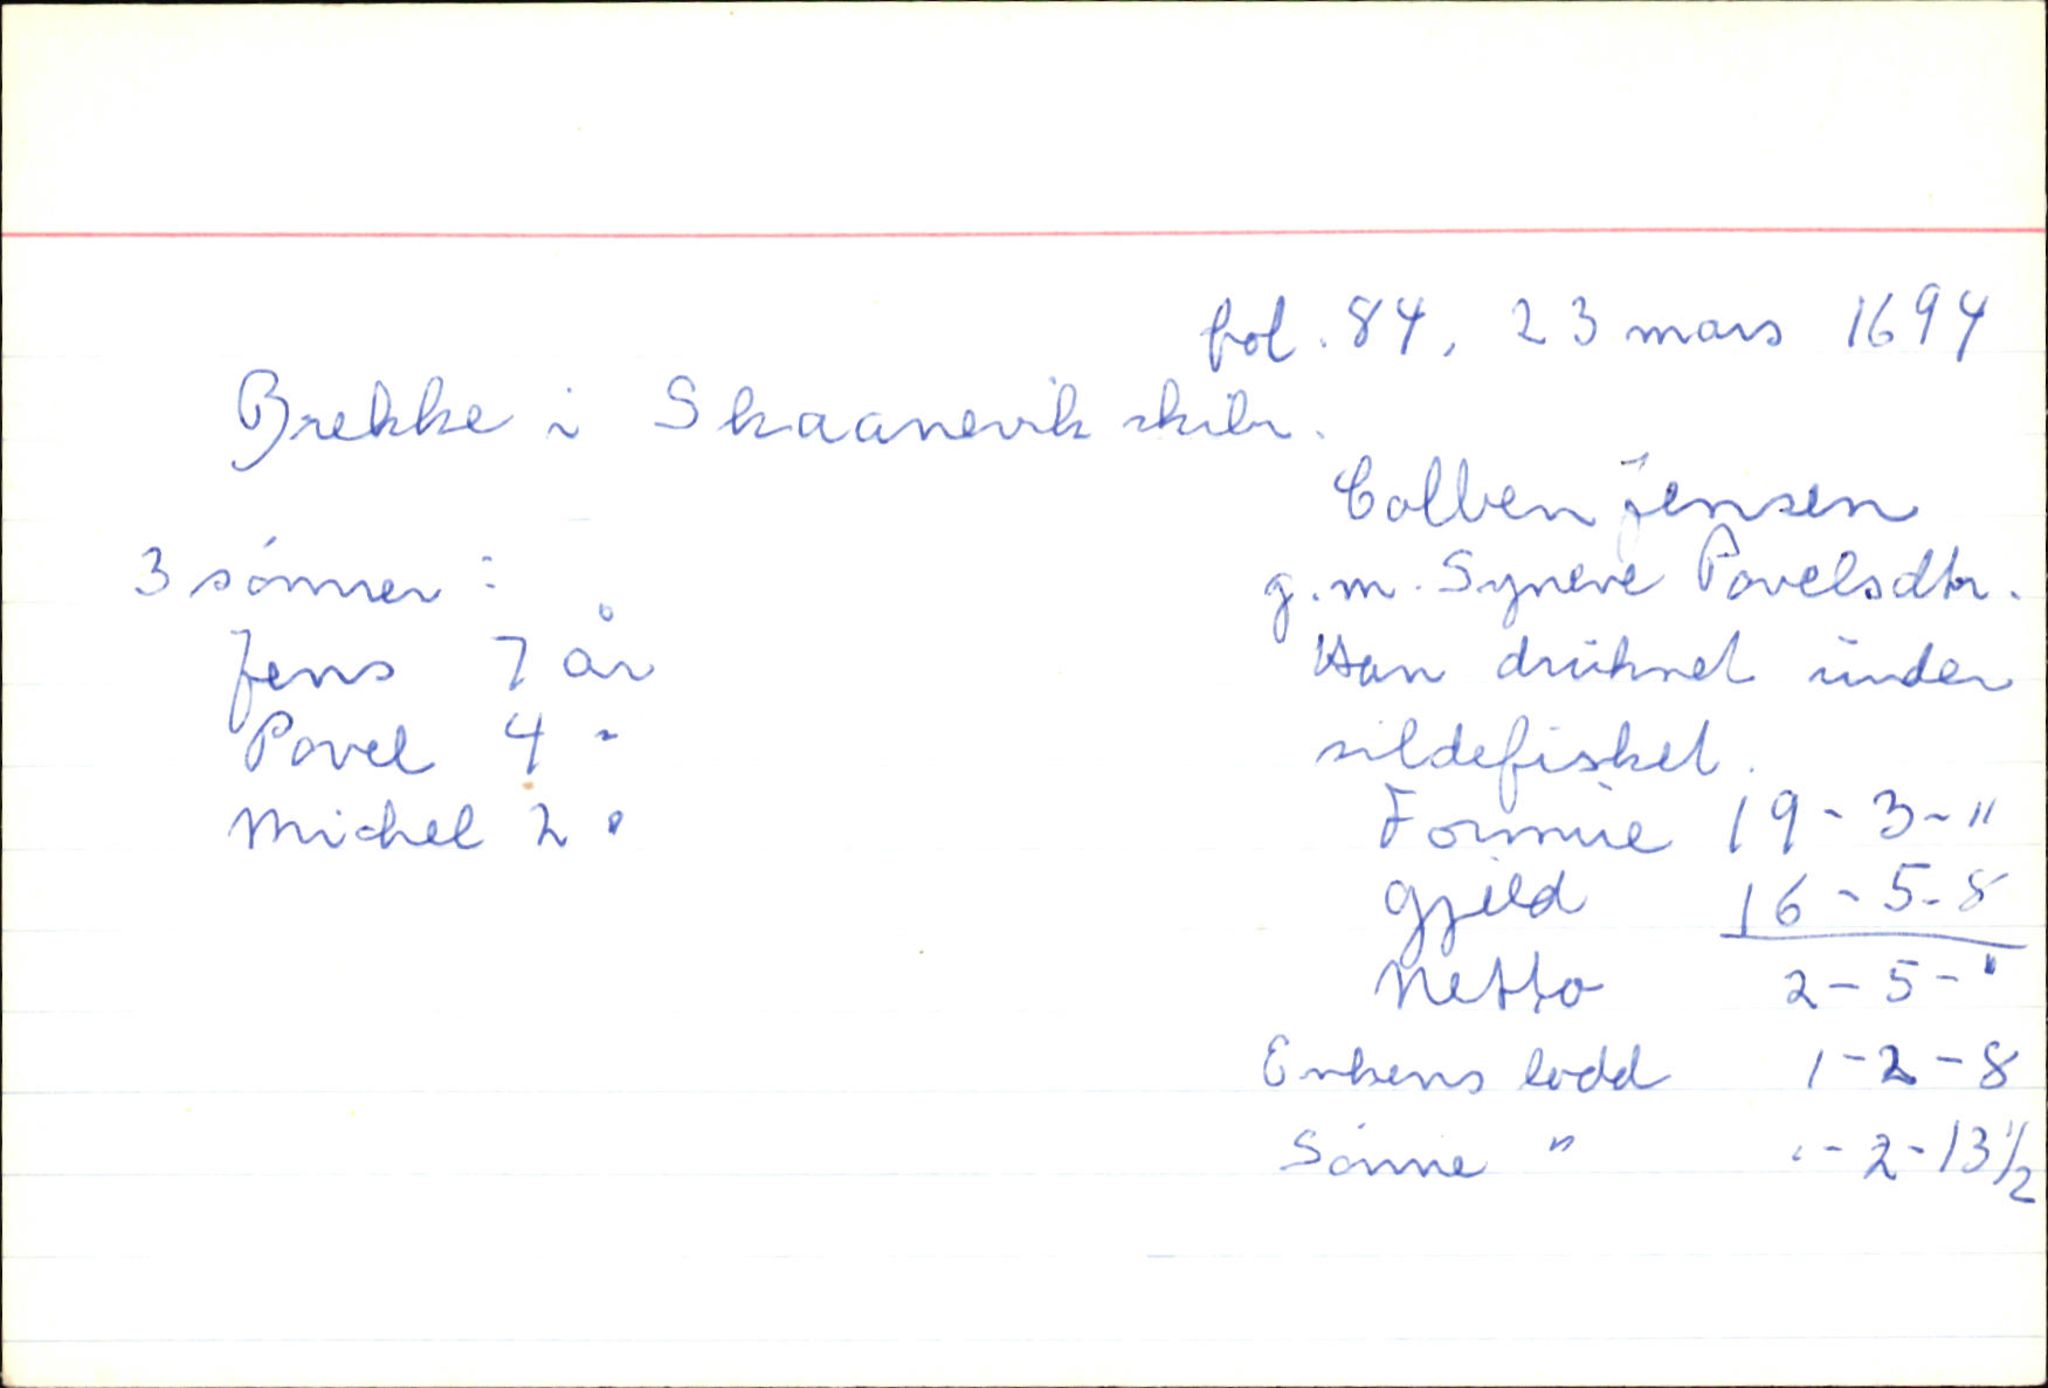 fol. 84, 23 mars 1694
Brekke i Skaanevik skibr.
Colben Jensen
g.m. Syneve Povelsdtr.
Han druknet under
sildefisket.
3 sønner:
Jens 7 år
Povel 4 "
Michel 2 "
Formue 19-3-"
Gjeld 16-5-8
Netto 2-5-"
Enkens lodd 1-2-8
Sønne " "-2-13 1/2